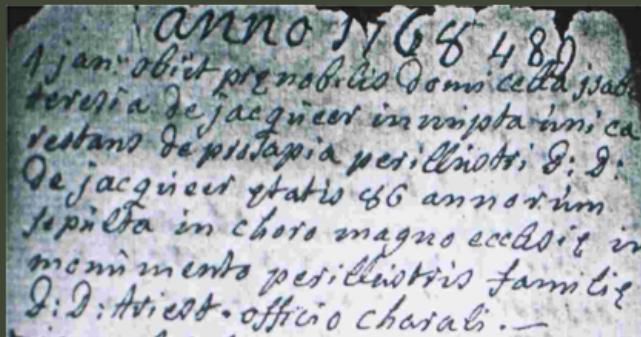 anno 1768 489
1 janii obiit prænobilis domicella isabe
teresia de jacqueer innupta unica
restans de prosapia perillustri D: D:
De jacqueer ætatis 86 annorum
sepulta in choro magno ecclesię in
monumento perillustris familię
D: D: triest. officio chorali. —